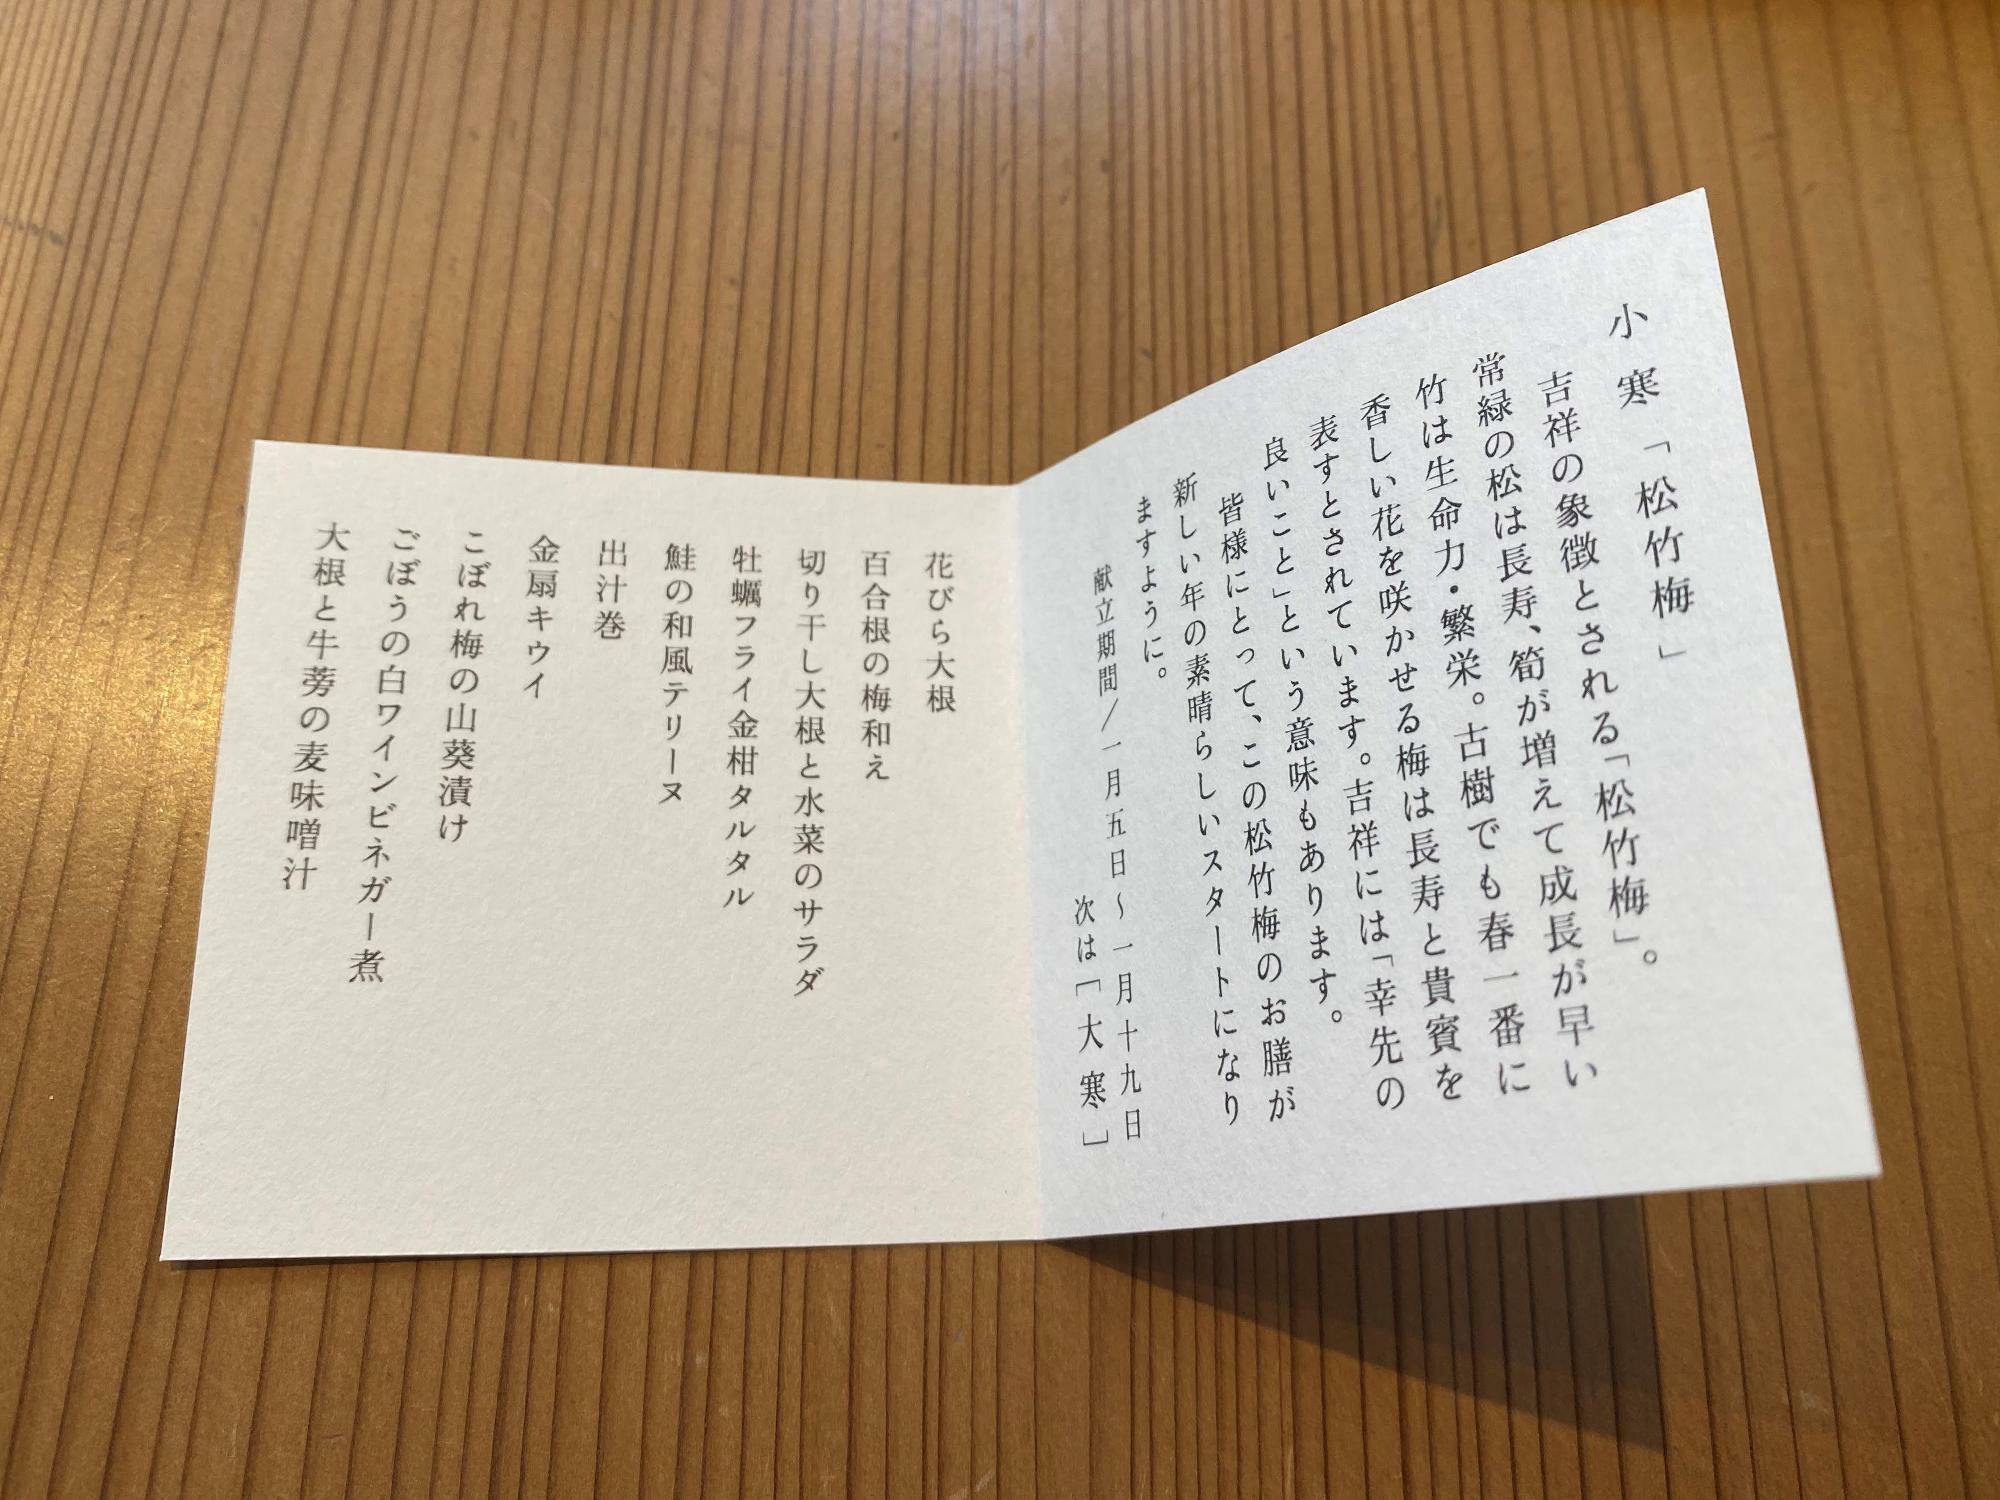 小寒「松竹梅」
吉祥の象徴とされる「松竹梅」。
常緑の松は長寿、筍が増えて成長が早い
竹は生命力・繁栄。古樹でも春一番に
香しい花を咲かせる梅は長寿と貴賓を
表すとされています。吉祥には「幸先の
良いこと」という意味もあります。
皆様にとって、この松竹梅のお膳が
新しい年の素晴らしいスタートになり
ますように。
献立期間／一月五日〜一月十九日
次は「大寒」
花びら大根
百合根の梅和え
切り干し大根と水菜のサラダ
牡蠣フライ金柑タルタル
鮭の和風テリーヌ
出汁巻
金扇キウイ
こぼれ梅の山葵漬け
ごぼうの白ワインビネガー煮
大根と牛蒡の麦味噌汁